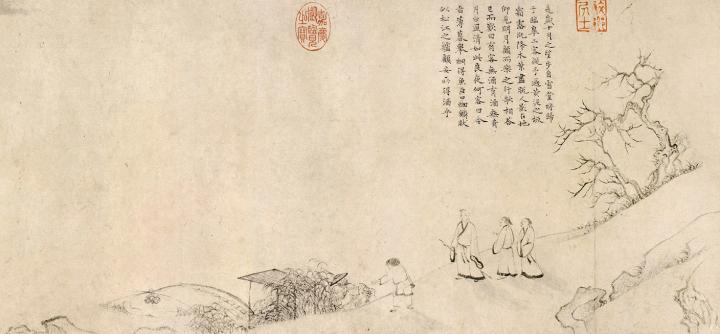 是歲十月之望步自雪堂將歸
于臨皋二客從予過黃泥之坂
霜露既降木葉盡脫人影在地
仰見明月顧而樂之行歌相答
已而歎曰有客無酒有酒無肴
月白風清如此良夜何客曰今
者薄暮舉網得魚巨口細鱗狀
似松江之鱸顧安所得酒乎
嘉慶御覽之寶